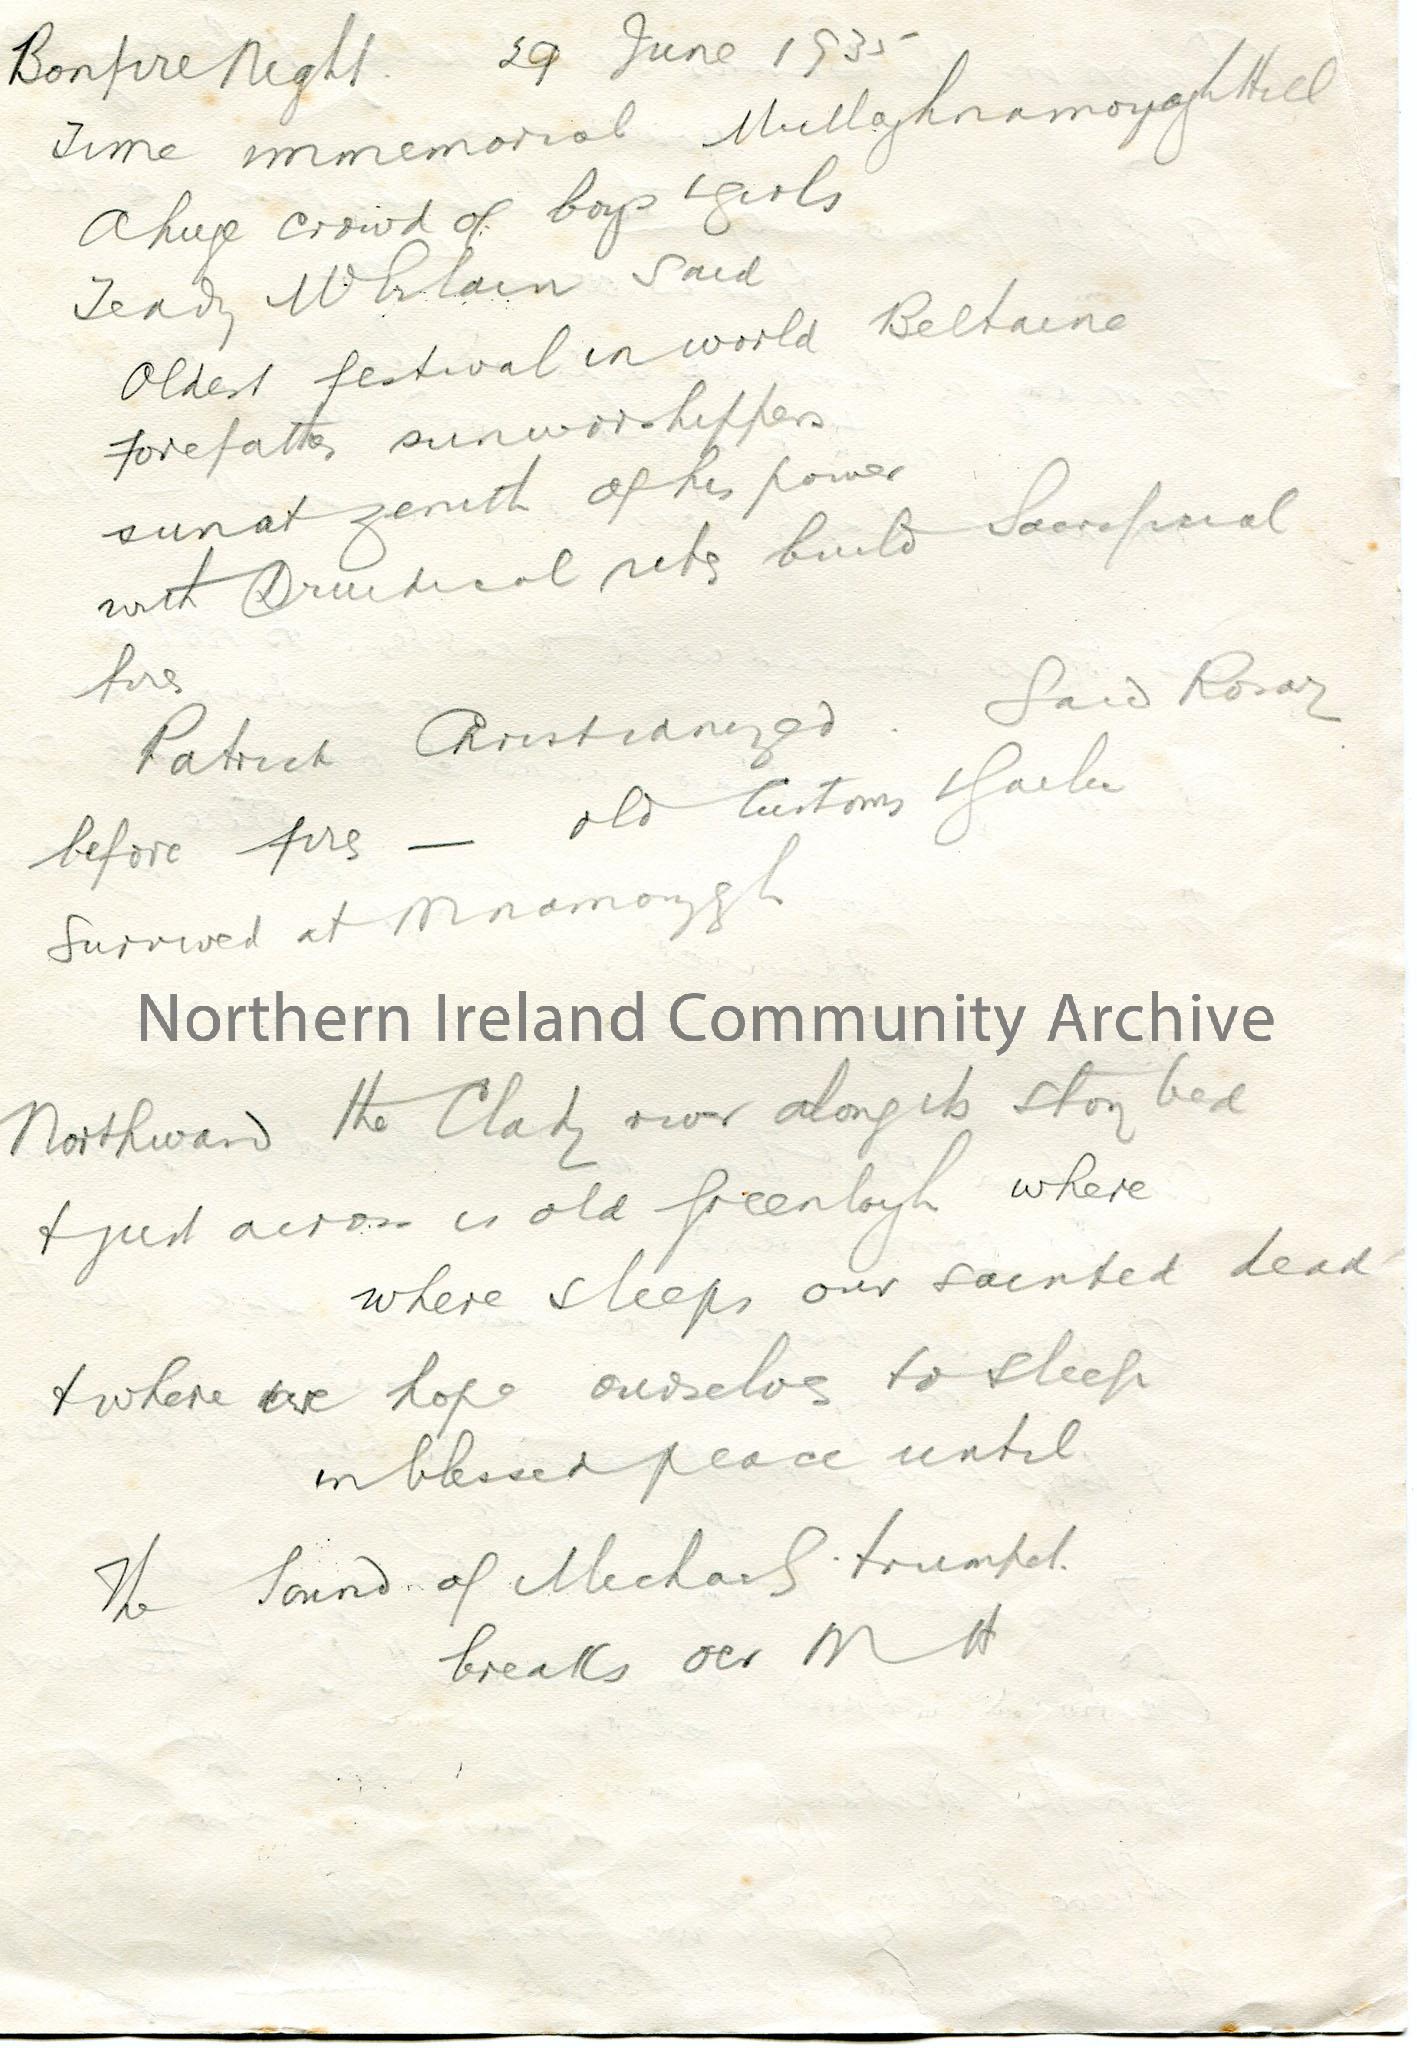 Bonfire Night. 29 June 1935
Time immemorial Mullaghnamoyagh Hill
A huge crowd of boys & girls
Teady said
Oldest festival in world Beltaine
Forefathes sunworshippers
sun at zenith of his power
with Druidical rites build Sacrificial
fires
Patrick Christianized. Said Rosary
before fires — old Customs & Gaelic
Survived at Mnamoygh
Northern Ireland Community Archive
Northward the Clady river along its stony bed
& just across is old Greenlough where
where sleeps our sainted dead
& where we hope ourselves to sleep
in blessed peace until
The Sound of Michaels trumpet.
breaks oer M H